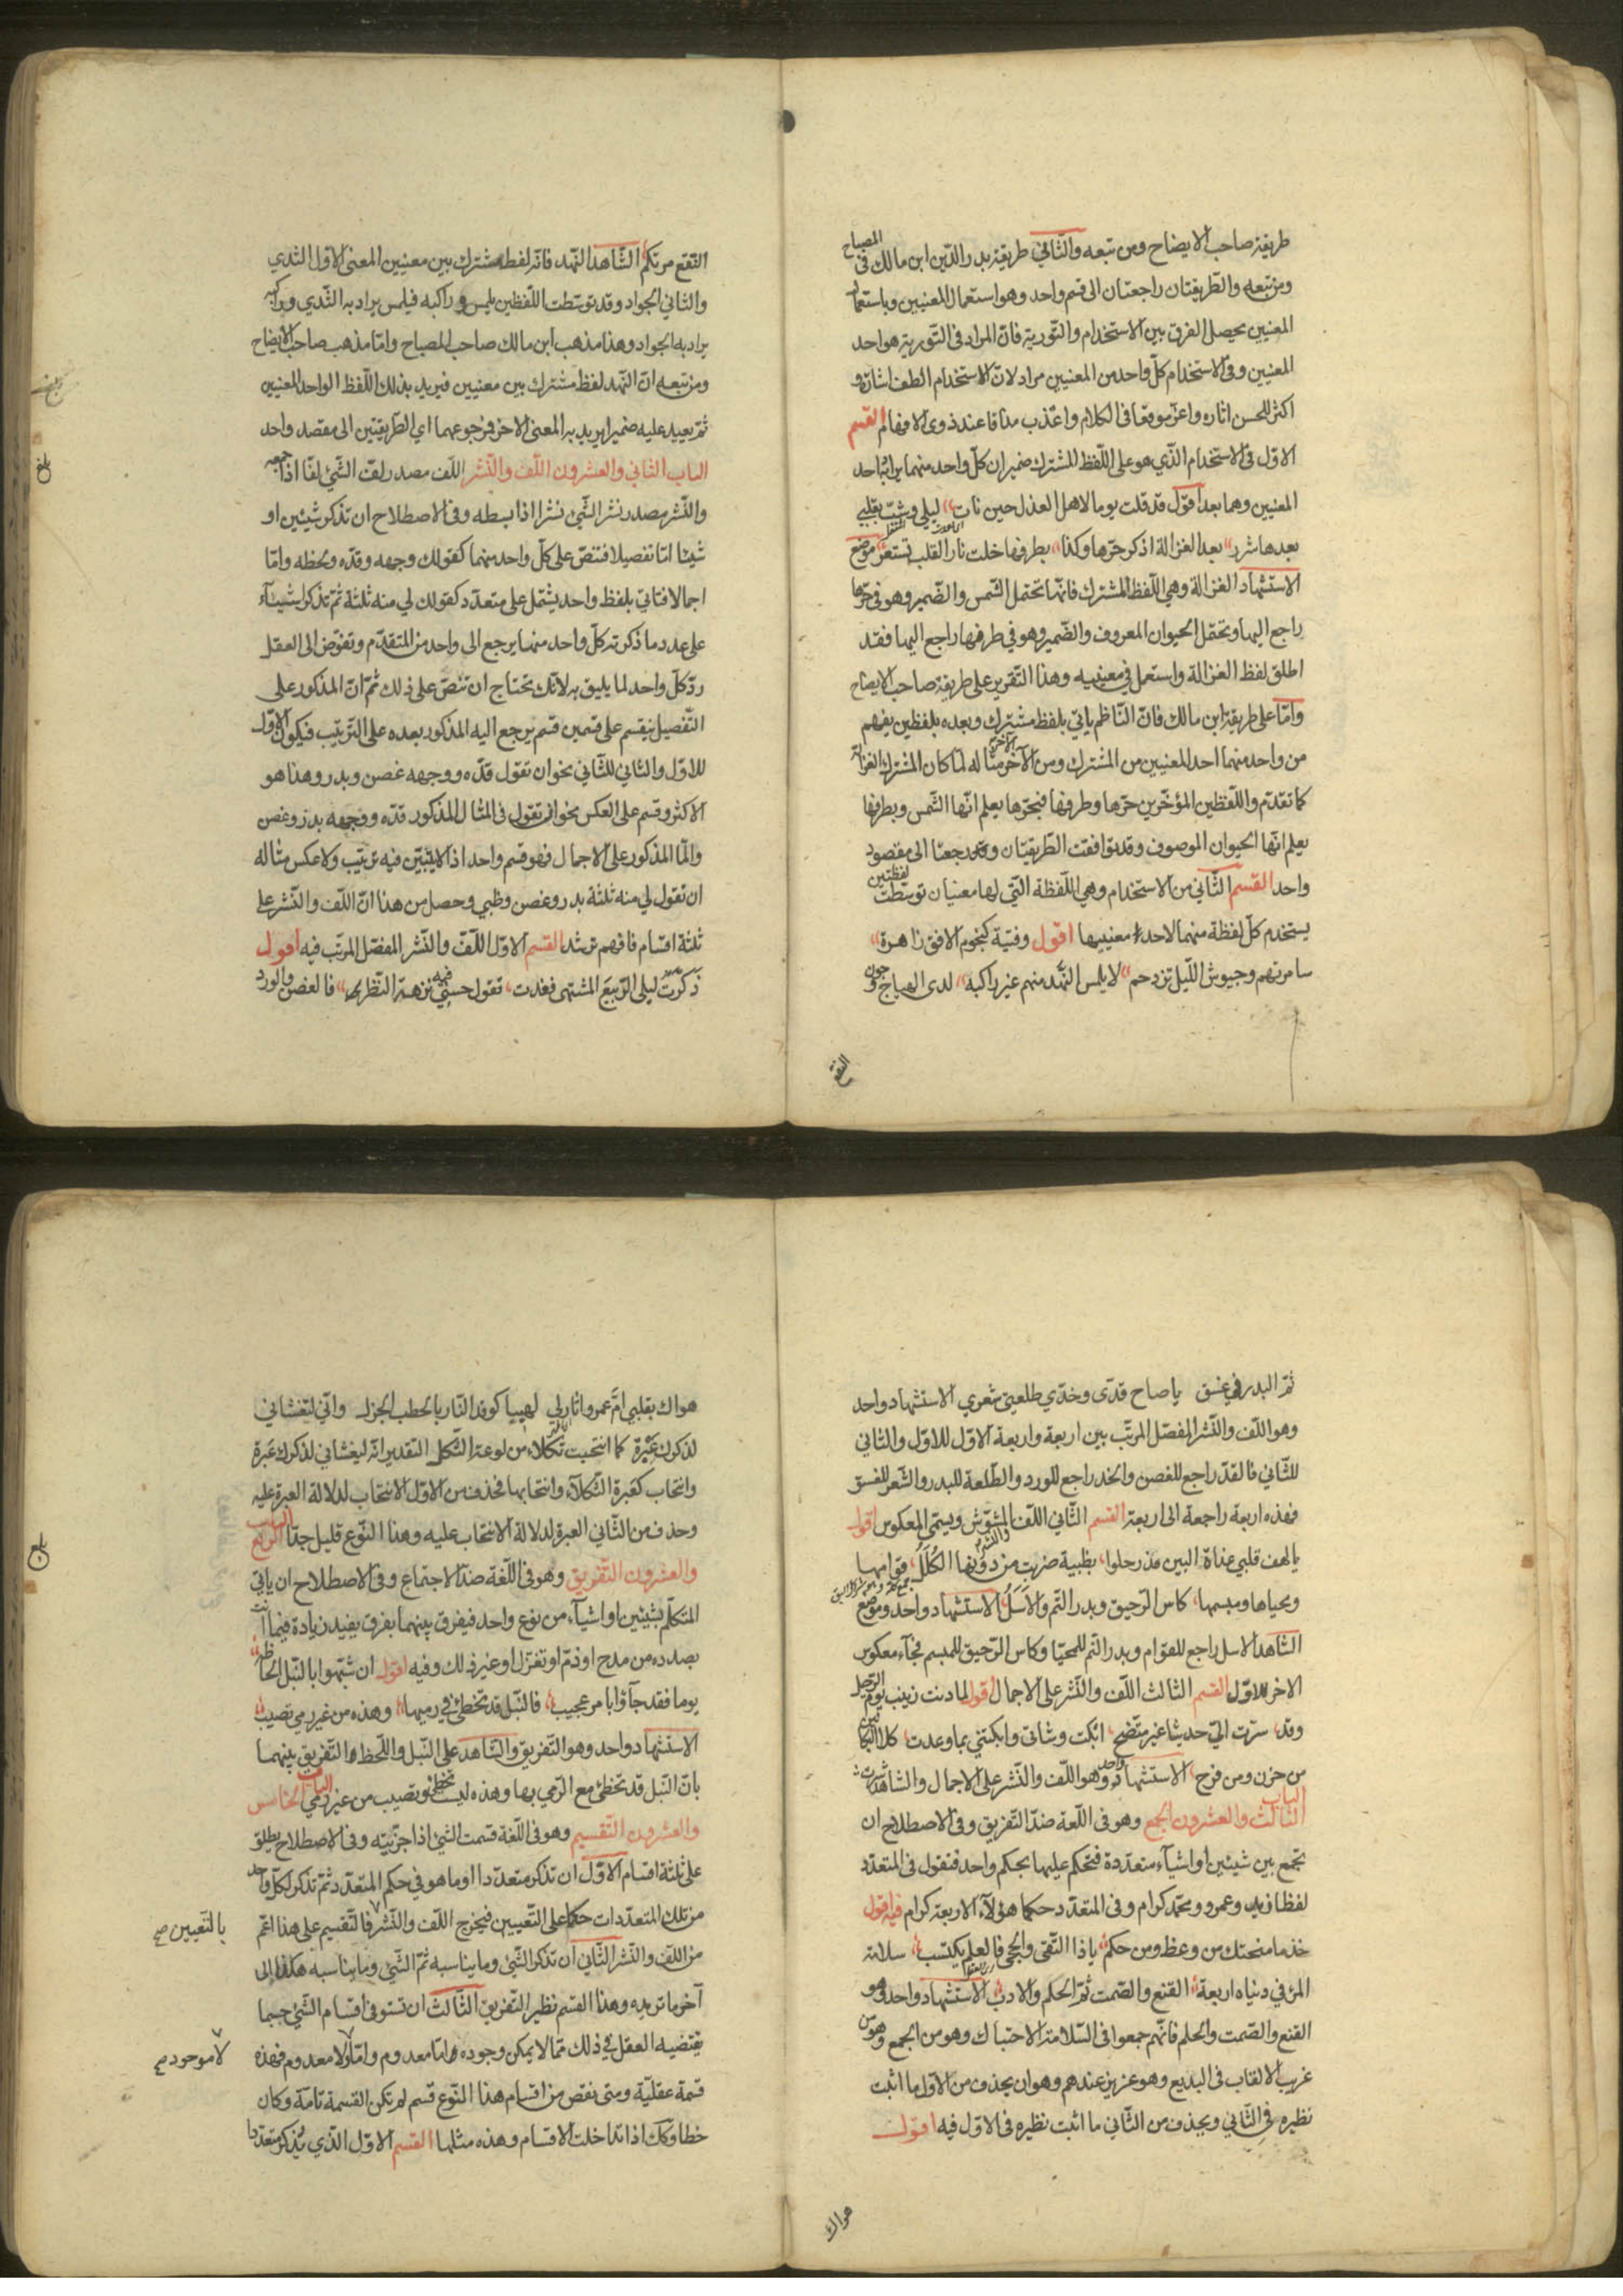 طريقة صاحب الايضاح ومن تبعه والثاني طريقة بدر الدين ابن مالك فى المصباح
ومن تبعه والطريقتان راجعتان الى قسم واحد وهو استعمال المعنيين وباستعمال
المعنيين يحصل الفرق بين الاستخدام والتورية فان المراد فى التورية هو احد
المعنيين وفى الاستخدام كل واحد من المعنيين مراد لان الاستخدام الطف اشارة و
اكثر للحسن اثاره واعز موقعا فى الكلام واعذب مذاقا عند ذوى الافهام القسم
الاول فى الاستخدام الذي هو على اللفظ المشترك ضميران كل واحد منهما يراد به احد
المعنيين وهما بعد اقول قد قلت يوما لاهل العذل حين نات ليلي وشب بقلبي
بعدها شرر بعد الغزالة اذكر حرها وكذا بطرفها خلت نار القلب تستعر موضع
الاستشهاد الغزالة وهي اللفظ المشترك فانها تحتمل الشمس والضمير وهو فى حرها
راجع اليها وتحتمل الحيوان المعروف والضمير وهو في طرفها راجع اليها فقد
اطلق لفظ الغزالة واستعمل في معنييه وهذا التقرير على طريقة صاحب الايضاح
واما على طريقة ابن مالك فان الناظم ياتي بلفظ مشترك وبعده بلفظين يفهم
من واحد منهما احد المعنيين من المشترك ومن الآخر الآخر مثاله لما كان المشترك الغزالة
كما تقدم واللفظين المؤخرين حرها وطرفها فبحرها يعلم انها الشمس وبطرفها
يعلم انها الحيوان الموصوف وقد توافقت الطريقتان وقد رجعنا الى مقصود
واحد القسم الثاني من الاستخدام وهي اللفظة التي لها معنيان توسطت لفظتين
يستخدم كل لفظة منهما لاحد معنييها اقول وفتية كنجوم الافق زاهرة
سامرتهم وجيوش الليل تزدحم لا يلمس النهد منهم غير راكبه لدى الهياج وجون
النقع
النقع مرتكم الشاهد النهد فانه لفظ مشترك بين معنيين المعنى الاول الثدي
والثاني الجواد وقد توسطت اللفظين يلمس وراكبه فيلمس يراد به الثدي وراكبه
يراد به الجواد وهذا مذهب ابن مالك صاحب المصباح واما مذهب صاحب الايضاح
ومن تبعه ان النهد لفظ مشترك بين معنيين فيريد بذلك اللفظ الواحد المعنيين
ثم يعيد عليه ضميرا يريد به المعنى الاخر فرجوعهما اي الطريقتين الى مقصد واحد
الباب الثاني والعشرون اللف والنشر اللف مصدر لف الشئ لفا اذا جمعه
بلغ
والنشر مصدر نشر الشئ نشرا اذا بسطه وفى الاصطلاح ان تذكر شيئين او
شيئا اما تفصيلا فتنص على كل واحد منهما كقولك وجهه وقده ولحظه واما
اجمالا فتاتي بلفظ واحد يشتمل على متعدد كقولك لي منه ثلثة ثم تذكر اشياء
على عدد ما ذكرته كل واحد منها يرجع الى واحد من المتقدم وتفوض الى العقل
رد كل واحد لما يليق به لا انك تحتاج ان تنص على ذلك ثم ان المذكور على
التفصيل ينقسم على قسمين قسم يرجع اليه المذكور بعده على الترتيب فيكون الاول
للاول والثاني للثاني نحو ان تقول قده ووجهه غصن وبدر وهذا هو
الاكثر وقسم على العكس نحو ان تقول فى المثال المذكور قده ووجهه بدر وغصن
واما المذكور على الاجمال فهو قسم واحد اذ لا يتبين فيه ترتيب ولا عكس مثاله
ان تقول لي منه ثلثة بدر وغصن وظبي وحصل من هذا ان اللف والنشر على
ثلثة اقسام فافهم ترشد القسم الاول اللف والنشر المفصل المرتب فيه اقول
ذكرت ليلى الربيع المشتهى فغدت تقول حسبي فيه نزهة النظر فالغصن والورد
ثم البدر في غسق يا صاح قدى وخدي طلعتي شعري الاستشهاد واحد
وهو اللف والنشر المفصل المرتب بين اربعة واربعة الاول للاول والثاني
للثاني فالقد راجع للغصن والخد راجع للورد والطلعة للبدر والشعر للغسق
فهذه اربعة راجعة الى اربعة القسم الثاني اللف والنشر المشوش ويسمى المعكوس اقول
يا لهف قلبي غداة البين مذ رحلوا بظبية ضربت من دونها الكلل قوامها
ومحياها ومبسمها كاس الرحيق وبدر التم والاسل الاستشهاد واحد وموضع
الشاهد الاسل راجع للقوام وبدر التم للمحيا وكاس الرحيق للمبسم فجآء معكوس
الاخر للاول القسم الثالث اللف والنشر على الاجمال اقول لما دنت زينب يوم الرحيل
وقد سرت الي حديثا غير متضح ابكت وشاتى وابكتني بما وعدت كلا البكائين
من حزن ومن فرح الاستشهاد واحد وهو اللف والنشر على الاجمال والشاهد
الباب الثالث والعشرون الجمع وهو فى اللغة ضد التفريق وفى الاصطلاح ان
تجمع بين شيئين او اشيآء متعددة فتحكم عليها بحكم واحد فتقول فى المتعدد
لفظا زيد وعمرو ومحمد كرام وفى المتعدد حكما هؤلآء الاربعة كرام فيه اقول
خذ ما منحتك من وعظ ومن حكم يا ذا التقى والحجى فالعلم يكتسب سلامة
المرء في دنياه اربعة القنع والصمت ثم الحلم والادب الاستشهاد واحد وهو
القنع والصمت والحلم فانهم جمعوا فى السلامة الاحتباك وهو من الجمع وهو من
غريب الالقاب فى البديع وهو عزيز عندهم وهو ان يحذف من الاول ما اثبت
نظيره في الثاني ويحذف من الثاني ما اثبت نظيره فى الاول فيه اقول
هواك
هواك بقلبي ام عمرو اثار لي لهيبا كوقد النار بالحطب الجزل واني لتغشاني
لذكرك عبرة كما انتحبت ثكلاء من لوعة الثكل التقدير انه ليغشاني لذكرك عبرة
وانتحاب كعبرة الثكلاء وانتحابها فحذف من الاول الانتحاب لدلالة العبرة عليه
وحذف من الثاني العبرة لدلالة الانتحاب عليه وهذا النوع قليل جدا الباب الرابع
بلغ
والعشرون التفريق وهو فى اللغة ضد الاجتماع وفى الاصطلاح ان ياتي
المتكلم بشيئين او اشيآء من نوع واحد فيفرق بينهما بفرق يفيد زيادة فيما انت
بصدده من مدح او ذم او تغزل او غير ذلك وفيه اقول ان شبهوا بالنبل الحاظه
يوما فقد جآؤا بامر عجيب فالنبل قد تخطئ في رميها وهذه من غير رمي تصيب
الاستشهاد واحد وهو التفريق والشاهد على النبل واللحظ والتفريق بينهما
بان النبل قد تخطئ مع الرمي بها وهذه ليست تخطئ وتصيب من غير رمي الباب الخامس
والعشرون التقسيم وهو فى اللغة قسمت الشئ اذا جزيته وفى الاصطلاح يطلق
على ثلثة اقسام الاول ان تذكر متعددا او ما هو في حكم المتعدد ثم تذكر لكل واحد
من تلك المتعددات حكما على التعيين فيخرج اللف والنشر فالتقسيم على هذا اعم
بالتعيين صح
من اللف والنشر الثاني ان تذكر الشئ وما يناسبه ثم الشئ وما يناسبه هكذا الى
آخر ما تريده وهذا القسم نظير التفريق الثالث ان تستوفى اقسام الشئ حسبما
يقتضيه العقل في ذلك مما لا يمكن وجوده اما معدوم واما ولا معدوم فهذه
لا موجود صح
قسمة عقلية ومتى نقص من اقسام هذا النوع قسم لم تكن القسمة تامة وكان
خطا وكك اذا تداخلت الاقسام وهذه مثلها القسم الاول الذي يذكر متعددا